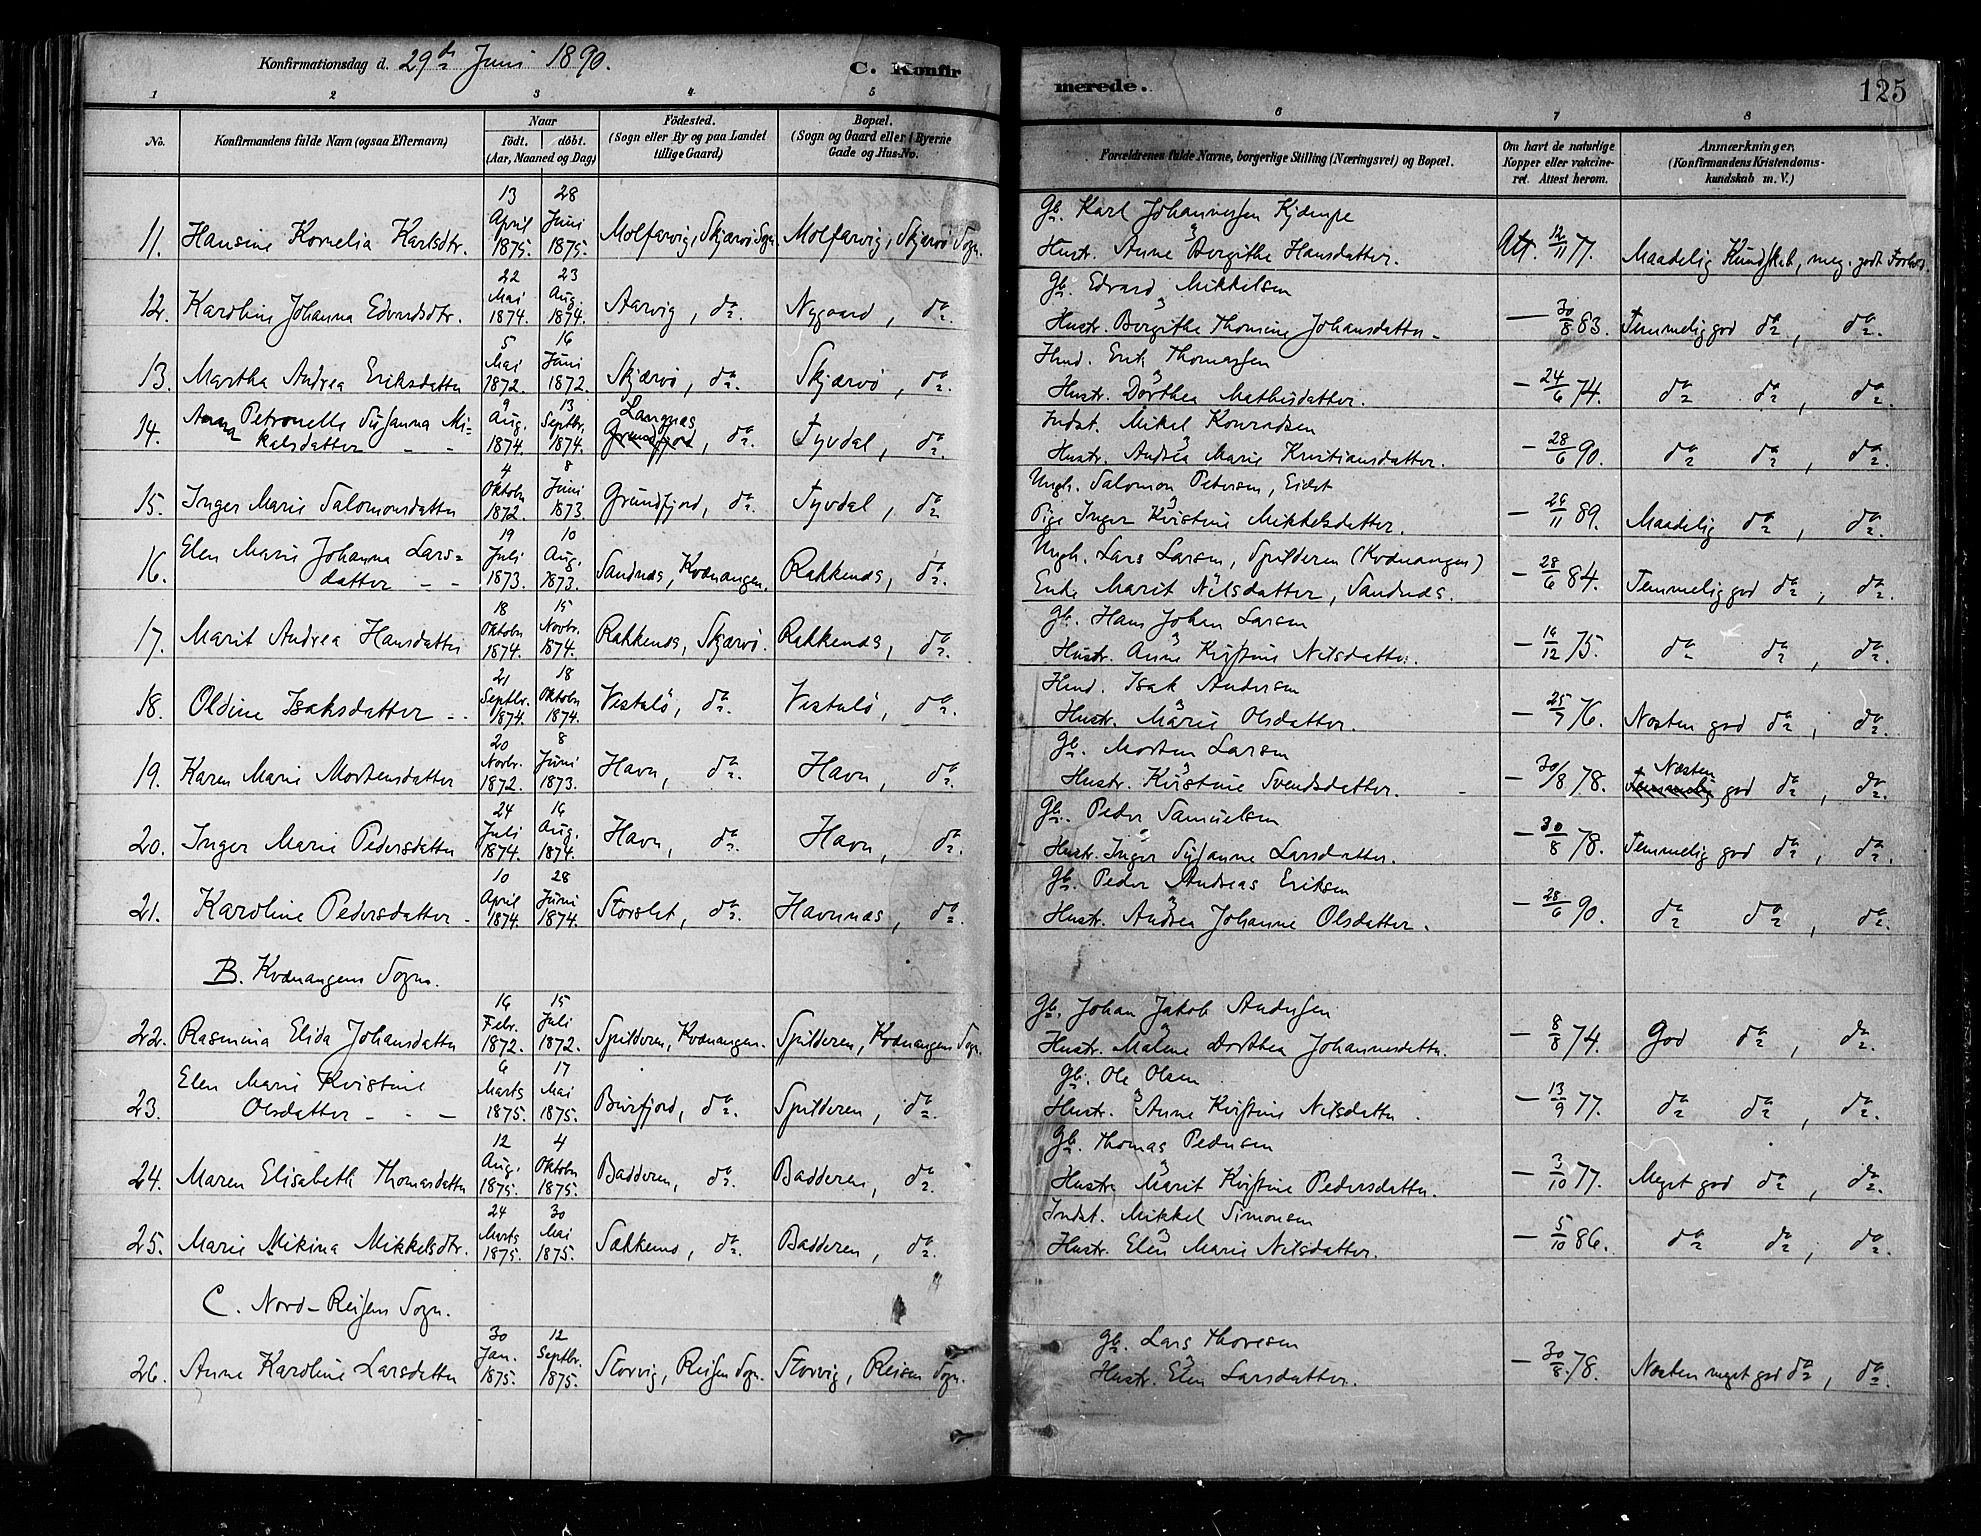 Konfirmationsdag d. 29de Juni 1890. C. Konfirmerede. 125
1 2 3 4 5 6 7 8
No. Konfirmandens fulde Navn (ogsaa Efternavn) Naar født. døbt. (Aar, Maaned og Dag) Fødested. (Sogn eller By og paa Landet tillige Gaard) Bopæl. (Sogn og Gaard eller i Byerne Gade og Hus-No. Forældrenes fulde Navne, borgerlige Stilling (Næringsvei) og Bopæl. Om havt de naturlige Kopper eller vakcineret. Attest herom. Anmærkninger, (Konfirmandens Kristendomskundskab m. V.)
11. Hansine Kornelia Karlsdtr. 13 April 1875. 28 Juni 1875. Molfarvig, Skjærvö Sogn. Molfarvig, Skjærvö Sogn. Gb. Karl Johannessen Kjempe
Hustr. Anne Bergithe Hansdatter. Att. 12/11 77. Maadelig Kundskab, meg. godt Forhold.
12. Karoline Johanna Edvardsdtr. 22 Mai 1874. 23 Aug. 1874. Aarvig, do. Nygaard, do. Gb. Edvard Mikkelsen
Hustr. Bergithe Thomine Johansdatter – 30/8 83. Temmelig god do, do.
13. Martha Andrea Eriksdatter 5 Mai 1872. 16 Juni 1872. Skjærvö, do. Skjærvö, do. Hmd. Erik Thomassen
Hustr. Dorthea Mathisdatter. – 24/6 74. do do, do.
14. Anna Petronella Susanna Mikalsdatter 9 Aug. 1874. 13 Septbr. 1874. Langnæs Grundfjord, do. Tyvdal, do. Indst. Mikel Konradsen
Hustr. Andrea Marie Kristiansdatter. – 28/6 90. do do, do.
15. Inger Marie Salomonsdatter 4 Oktobr 1872. 8 Juni 1873. Grundfjord, do. Tyvdal, do Ungk. Salomon Petersen, Eidet
Pige Inger Kristine Mikkelsdatter. – 26/11 89. Maadelig do, do.
16. Elen Marie Johanna Larsdatter 19 Juli 1873. 10 Aug. 1873. Sandnæs, Kvænangen. Rakkenæs, do. Ungk. Lars Larsen, Spilderen (Kvænangen)
Enke Marit Nilsdatter, Sandnæs. – 28/6 84. Temmelig god do, do.
17. Marit Andrea Hansdatter 18 Oktobr 1874. 15 Novbr. 1874. Rakkenæs, Skjærvö. Rakkenæs, do. Gb. Hans Johan Larsen
Hustr. Anne Kristine Nilsdatter. – 16/12 75. do do, do.
18. Oldine Isaksdatter 21 Septbr. 1874. 18 Oktobr 1874. Vestalö, do. Vestalö, do. Hmd. Isak Andersen
Hustr. Marie Olsdatter. – 25/7 76. Næsten god do, do.
19. Karen Marie Mortensdatter 20 Novbr. 1872. 8 Juni 1873. Havn, do. Havn, do. Gb. Morten Larsen
Hustr. Kristine Svendsdatter. – 30/8 78. Næsten Temmelig god do, do.
20. Inger Marie Pedersdatter 24 Juli 1874. 16 Aug. 1874. Havn, do. Havn, do. Gb. Peder Samuelsen
Hustr. Inger Sysanne Larsdatter. – 30/8 78. Temmelig god do, do.
21. Karoline Pedersdatter 10 April 1874. 28 Juni 1874. Storslet, do. Havnnæs, do. Gb. Peder Andreas Eriksen
Hustr. Andrea Johanne Olsdatter. – 28/6 90. do do, do.
B. Kvænangens Sogn.
22. Rasmina Elida Johansdatter 16 Febr. 1872. 15 Juli 1872. Spilderen, Kvænangen. Spilderen, Kvænangens Sogn. Gb. Johan Jakob Andersen
Hustr. Malene Dorthea Johannesdatter. – 8/8 74. God do, do.
23. Elen Marie Kristine Olsdatter 6 Marts 1875. 17 Mai 1875. Burfjord, do. Spilderen, do. Gb. Ole Olsen
Hustr. Anne Kristine Nilsdatter. – 13/9 77. do do, do.
24. Maren Elisabeth Thomasdatter 12 Aug. 1875. 4 Oktobr 1875. Badderen, do. Badderen, do. Gb. Thomas Pedersen
Hustr. Marit Kristine Pedersdatter. – 3/10 77. Meget god do, do.
25. Marie Mikina Mikkelsdtr. 24 Marts 1875. 30 Mai 1875. Sakkemo, do. Badderen, do. Indst. Mikkel Simonsen
Hustr. Elen Marie Nilsdatter. – 5/10 86. do do, do.
C. Nord-Reisens Sogn.
26. Anne Karoline Larsdatter 30 Jan. 1875. 12 Septbr. 1875. Storvig, Reisen Sogn. Storvig, Reisen Sogn. Gb. Lars Thoresen
Hustr. Elen Larsdatter. – 30/8 78. Næsten meget god do, do.